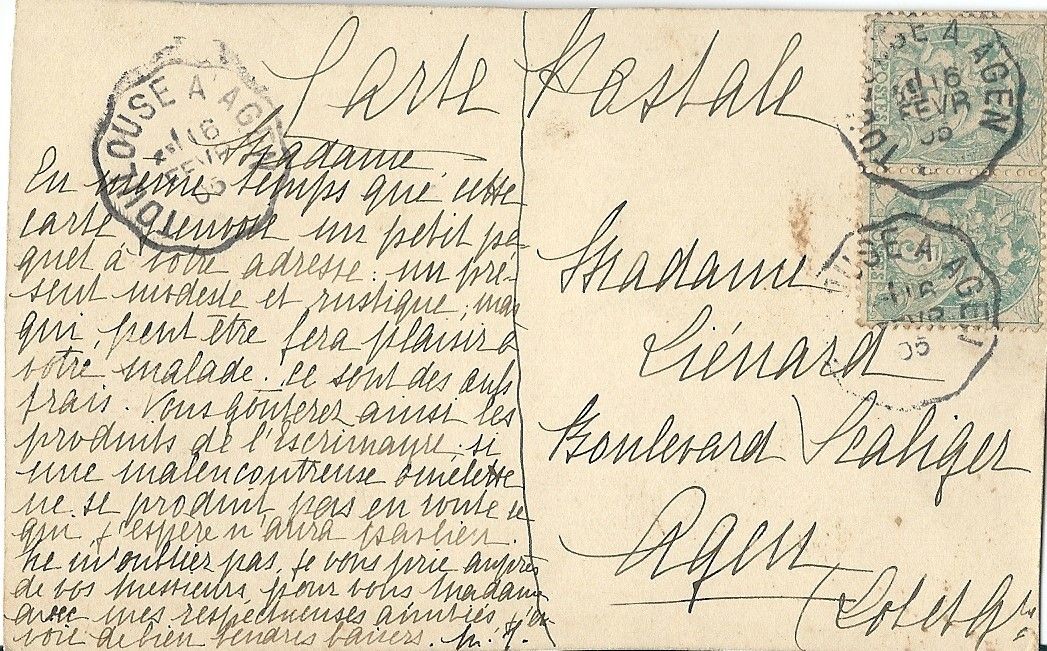 Carte Postale
TOULOUSE A AGEN
16
FEVR
05
Madame
En même temps que cette
carte j'envoie un petit pa-
quet à votre adresse : un pré-
sent modeste et rustique, mais
qui, peut être fera plaisir à
votre malade. ce sont des œufs
frais. Vous goûterez ainsi les
produits de l'Escrimayre, si
une malencontreuse omelette
ne se produit pas en route ce
qui, j'espère n'aura pas lieu.
Ne m'oubliez pas, je vous prie auprès
de vos messieurs, pour vous Madame
avec mes respectueuses amitiés, j'en-
voie de bien tendres baisers.
Madame
Liénard
Boulevard Scaliger
Agen
(Lot et Gne
TOULOUSE A AGEN
16
FEVR
05
POSTES
OUSE A AGEN
16
05